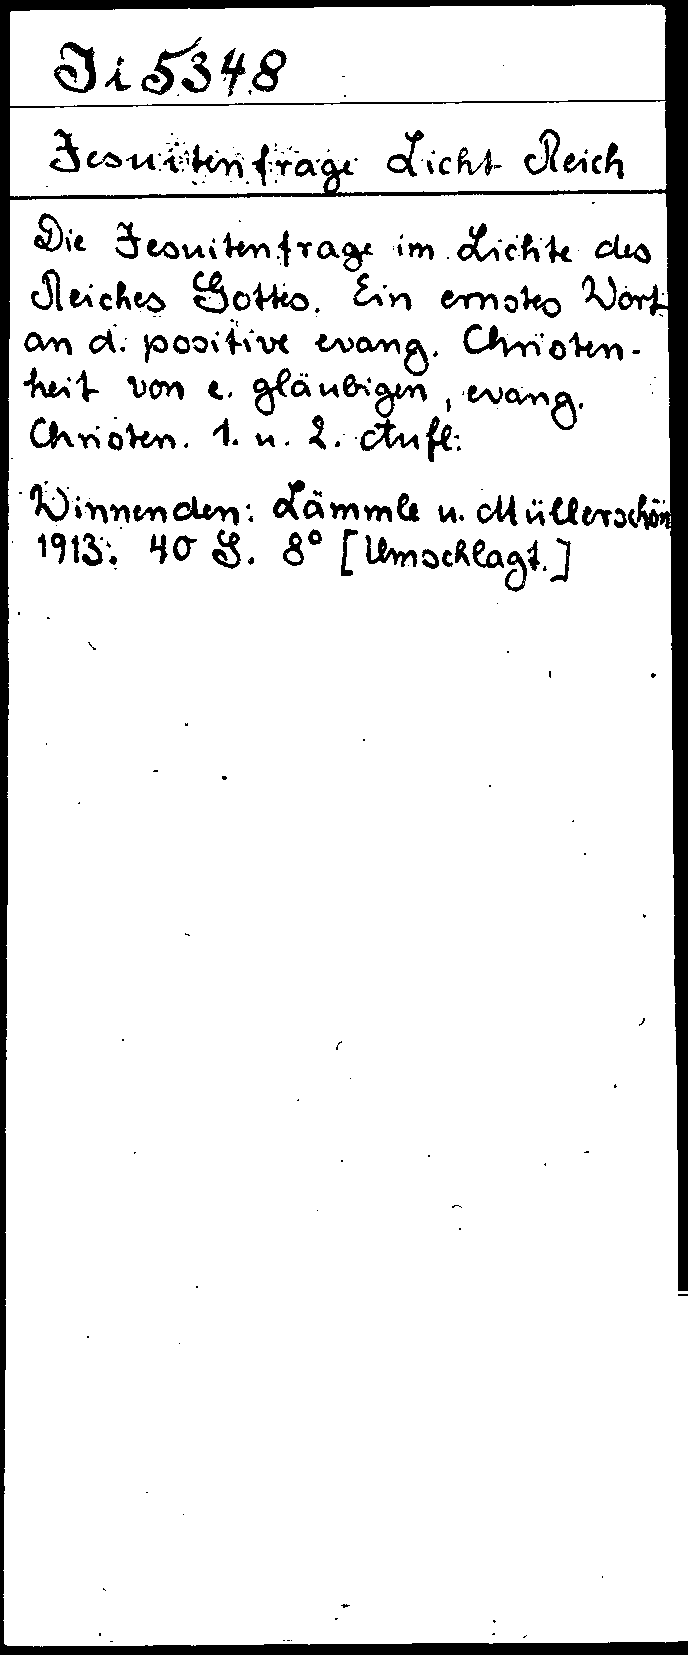 Ji 5348
Jesuitenfrage Licht Reich
Die Jesuitenfrage im Lichte des
Reiches Gottes. Ein ernstes Wort
an d. positive evang. Christen-
heit von e. gläubigen, evang.
Christen. 1. u. 2. Aufl.
Winnenden: Lämmle u. Müllerschön
1913. 40 S. 8° [Umschlagt.]